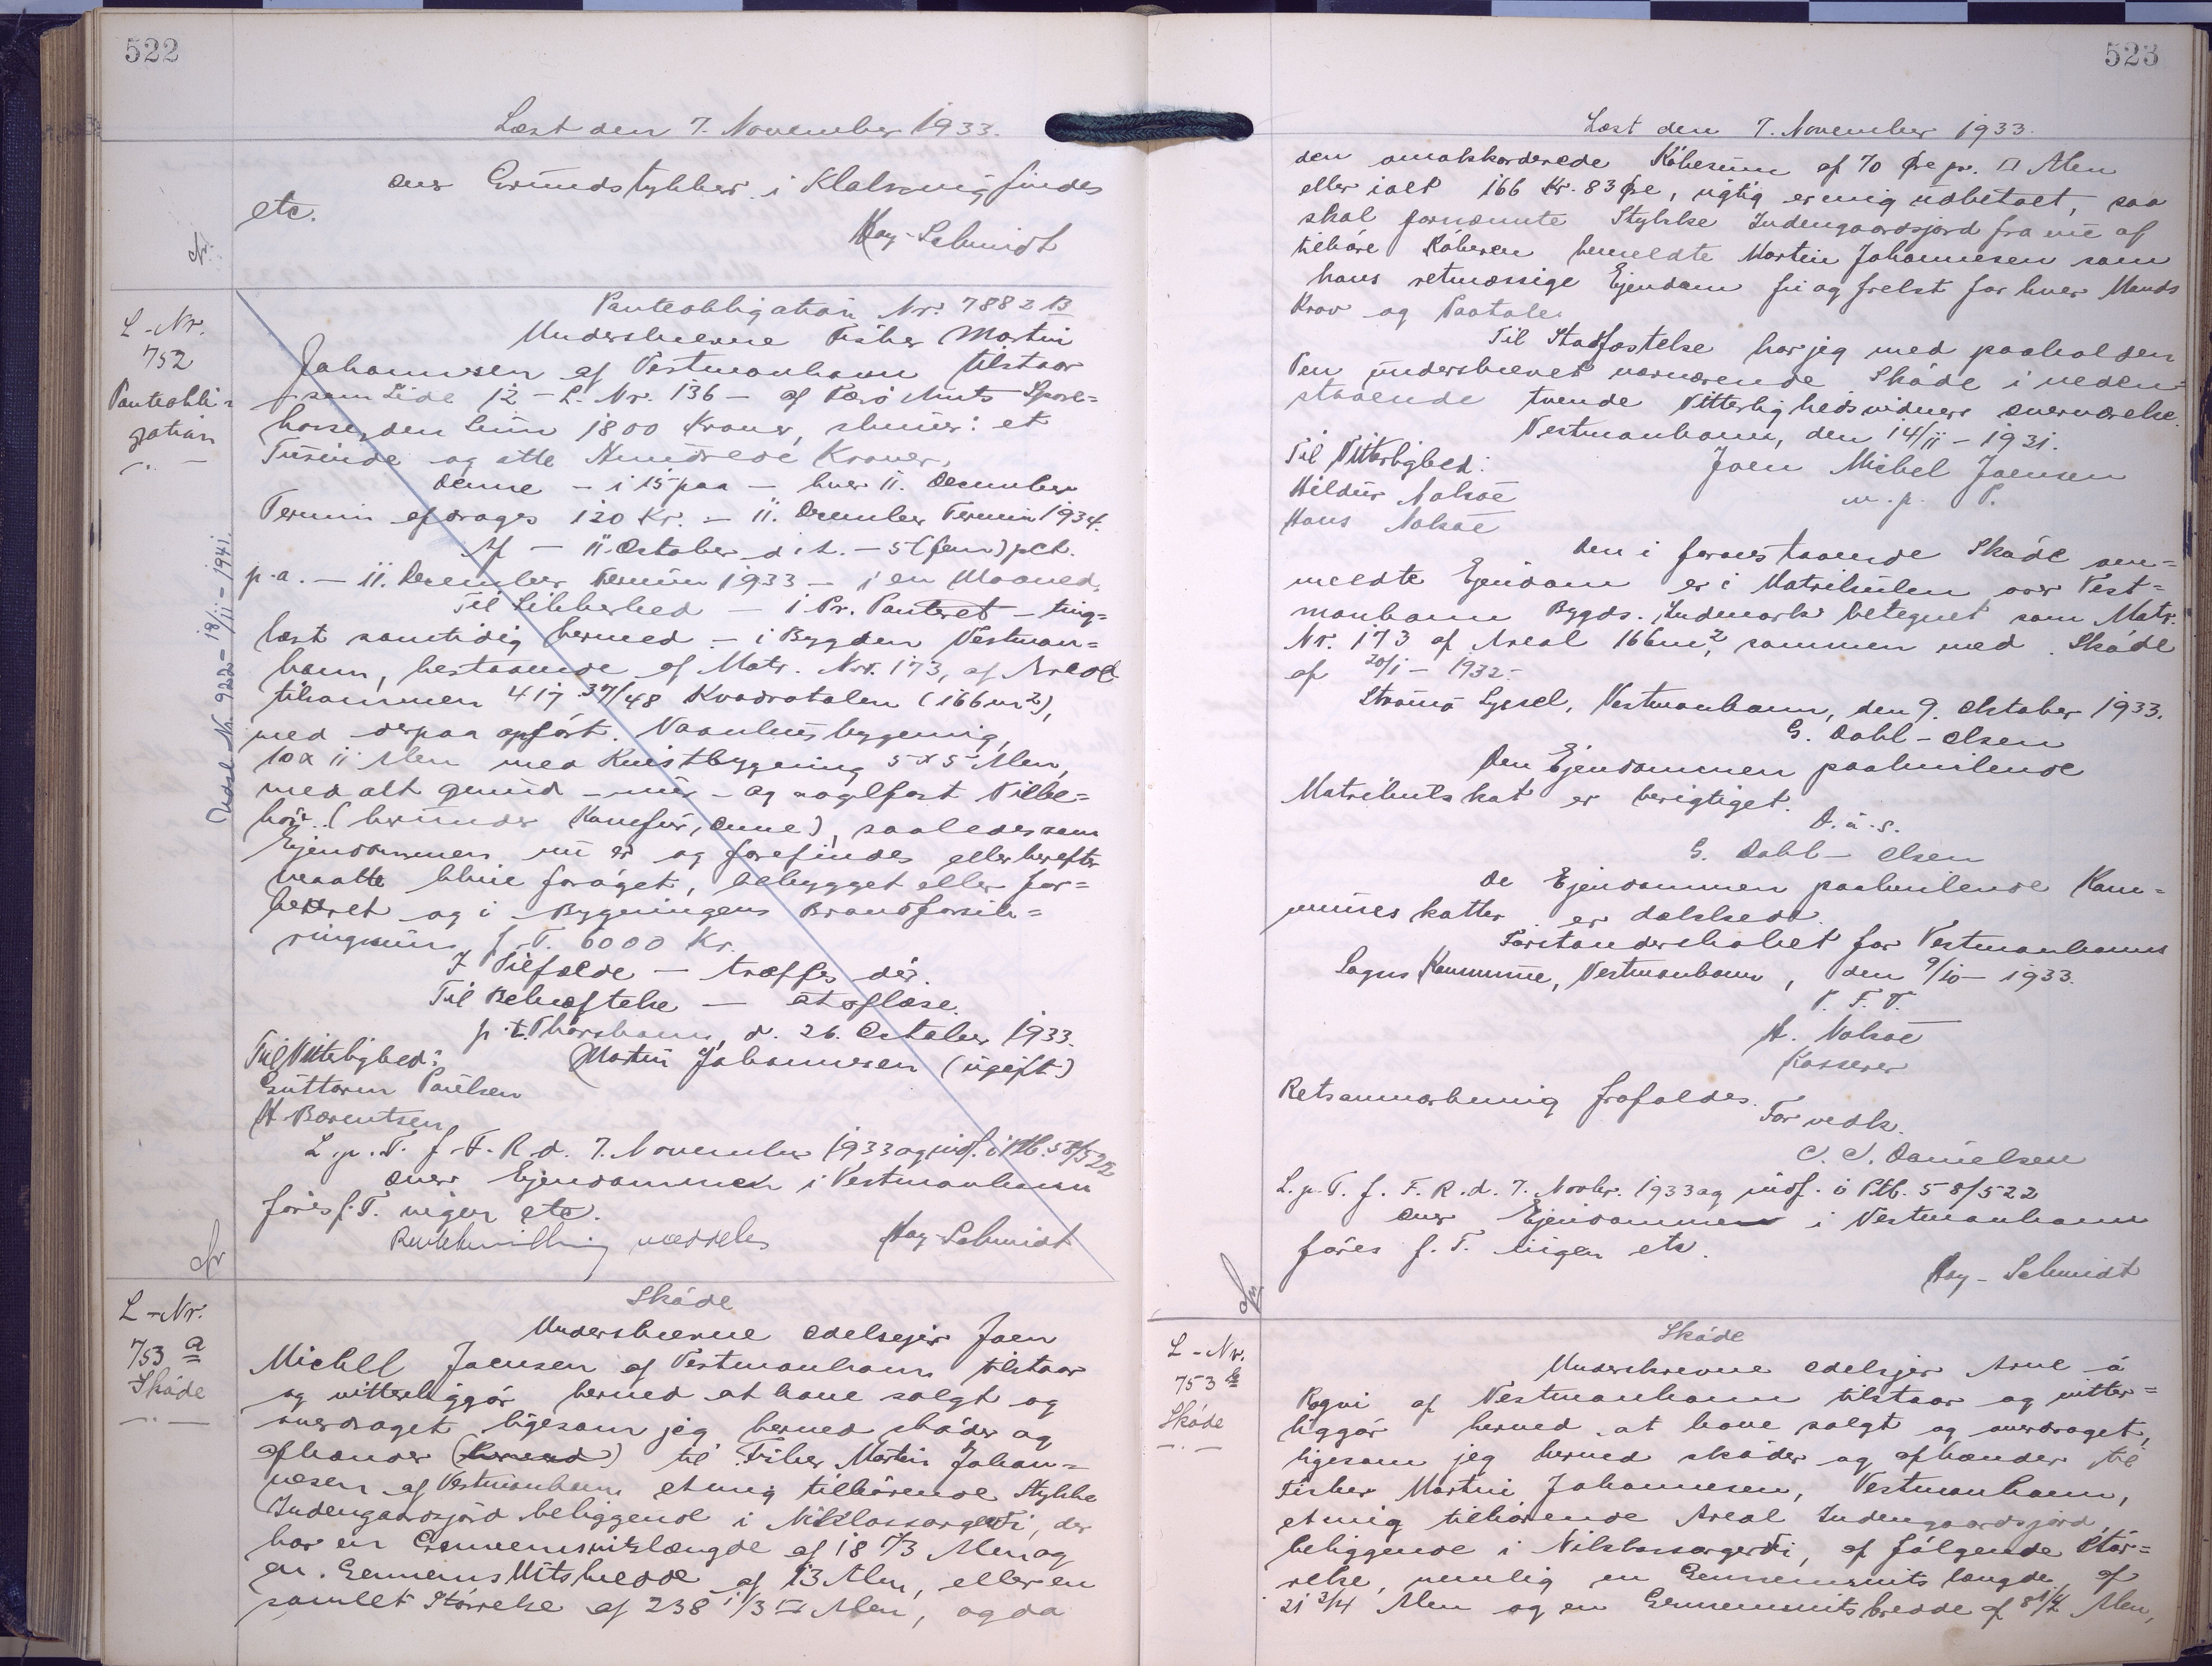 522
Læst den 7. November 1933.
over Grundstykker i Klaksvig findes
etc.
Kay-Schmidt
L-Nr.
752
Panteobli-
gation
Udsl. Nr. 922 - 18/11 - 1941.
Panteobligation Nr. 7882 B
Underskrevne Fisker Martin
Johannesen af Vestmanhavn tilstaar
- som Side 12 - L. Nr. 136 - af Færö Amts Spare=
kasse, den Sum 1800 Kroner, skriver: et
Tusinde og otte Hundrede Kroner,
denne - i 15 paa - hver 11. December
Termin afdrages 120 Kr. - 11. December Termin 1934.
Af - 11. October d. A. - 5 (fem) pct.
p.a. - 11. December Termin 1933 - i en Maaned,
Til Sikkerhed - 1 Pr. Panteret - ting=
læst samtidig hermed - i Bygden Vestman=
havn, bestaaende af Matr. Nr. 173, af Areal
tilsammen 417 37/48 Kvadratalen (166 m²),
med derpaa opfört Vaaningsbygning,
10 x 11 Alen med Kvistbygning 5 x 5 Alen,
med alt grund - mur - og nagelfast Tilbe=
hör (herunder Komfur, Ovne), saaledes som
Ejendommen nu er og forefindes eller herefter
maatte blive foröget, bebygget eller for=
bedret og i Bygningens Brandforsik=
ringssum, f. T. 6000 Kr.
I Tilfælde - træffes dér.
Til Bekræftelse - at aflæse.
p.t. Thorshavn, d. 26. October 1933.
Til Vitterlighed: Martin Johannesen (ugift)
Guttorm Paulsen
H. Barentsen
L. p. T. f. F. R. d. 7. November 1933 og indf. i Ptb. 58/522
over Ejendommen i Vestmanhavn
föres f. T. ingen etc.
meddeles Kay-Schmidt
L-Nr.
753 a
Sköde
Sköde
Underskrevne Odelsejer Joen
Michell Joensen af Vestmanhavn tilstaar
og vitterliggör hermed at have solgt og
overdraget ligesom jeg hermed sköder og
afhænder (hermed) til Fisker Martin Johan=
nesen af Vestmanhavn et mig tilhörende Stykke
Indengaardsjord beliggende i Niklassargerði, der
har en Gennemsnitslængde af 18 1/3 Alen og
en Gennemsnitsbredde af 13 Alen, eller en
samlet Störrelse af 238 1/3 □ Alen, og da
523
Læst den 7. November 1933.
den omakkorderede Köbesum af 70 Öre pr. □ Alen
eller ialt 166 Kr. 83 Öre, rigtig er mig udbetalt, saa
skal fornævnte Stykke Indengaardsjord fra nu af
tilhöre Köberen bemeldte Martin Johannesen som
hans retmæssige Ejendom fri og frelst for hver Mands
Krav og Paatale.
Til Stadfæstelse har jeg med paaholden
Pen underskrevet nærværende Sköde i neden=
staaende tvende Vitterlighedsvidners Overværelse.
Vestmanhavn, den 14/11 - 1931.
Til Vitterlighed: Joen Michel Joensen
Hildur Nolsøe m. p. P.
Hans Nolsøe
Den i foranstaaende Sköde om=
meldte Ejendom er i Matrikulen over Vest=
manhavn Bygds Indmark betegnet som Matr.
Nr. 173 af Areal 166 m², sammen med Sköde
af 20/1 - 1932.
Strömö Syssel, Vestmanhavn, den 9. Oktober 1933.
G. Dahl-Olsen
Den Ejendommen paahvilende
Matrikulskat er berigtiget.
D. u. s.
G. Dahl-Olsen
De Ejendommen paahvilende Kom=
muneskatter er dækkede.
Forstanderskabet for Vestmanhavns
Sogns Kommune, Vestmanhavn, den 9/10 - 1933.
P. F. V.
H. Nolsøe
Kasserer
Retsanmærkning frafaldes.
For vedk.
L. p. T. f. F. R. d. 7. Novbr. 1933 og indf. i Ptb. 58/522
over Ejendommen i Vestmanhavn
föres f. T. ingen etc.
Kay-Schmidt
L-Nr.
753 b
Sköde
Sköde
Underskrevne Odelsejer Arne á
Rógvi af Vestmanhavn tilstaar og vitter=
liggör hermed at have solgt og overdraget,
ligesom jeg hermed sköder og afhænder til
Fisker Martin Johannesen, Vestmanhavn,
et mig tilhörende Areal Indengaardsjord,
beliggende i Niklassargerði, af fölgende Stör=
relse, nemlig en Gennemsnitslængde af
21 3/4 Alen og en Gennemsnitsbredde af 8 1/4 Alen,